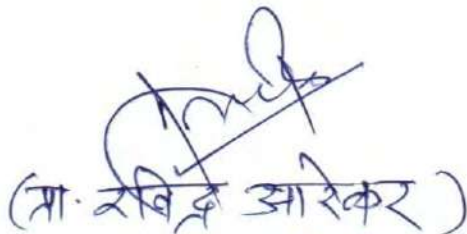 (प्रा. रविंद्र आरेकर)